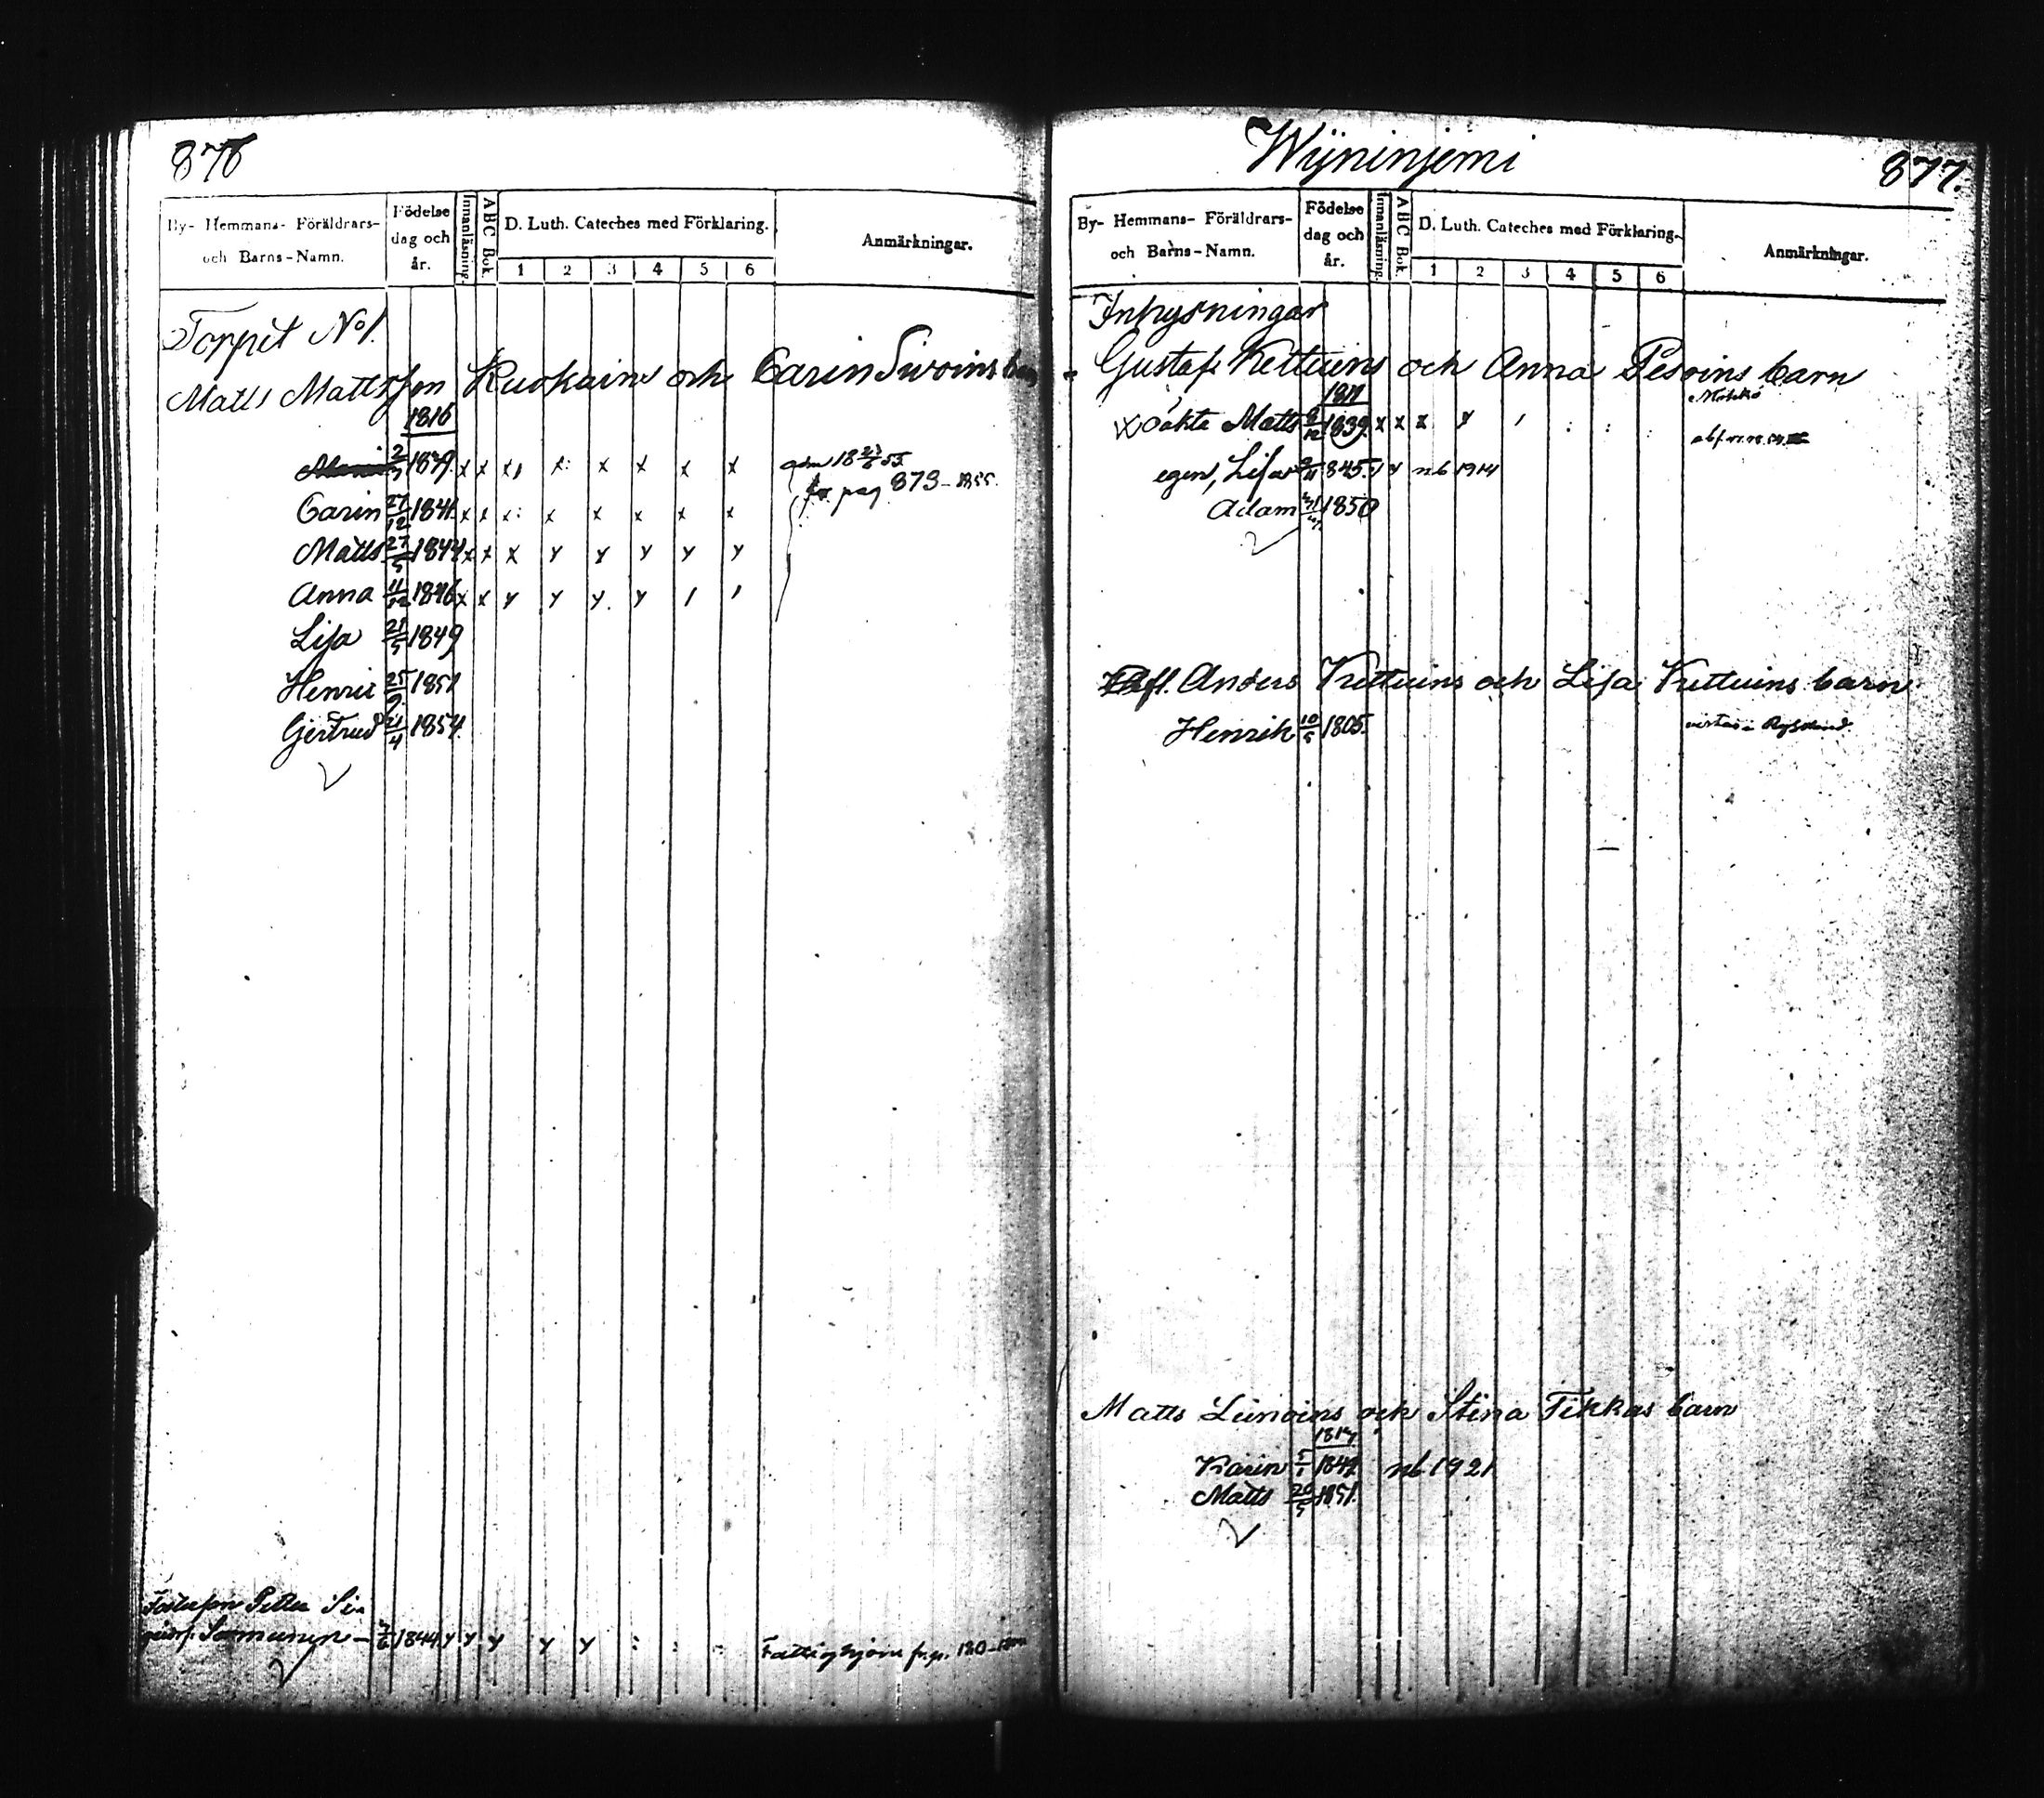 876
By- Hemmans- Föräldrars- och Barns-Namn.
Födelse dag och år.
Innanläsning.
ABC Bok.
D. Luth. Cateches med Förklaring.
1 2 3 4 5 6
Anmärkningar.
Torpet No 1.
Matts Mattsson Kuokains och Carin Swoins barn
1816
2/3 1839. x x x x: x x x x
Carin 27/12 1841. x x x: x x x x x
fr pag 873-1855.
Matts 27/5 1844 x x x y y y y y
Anna 11/12 1846 x x y y y. y / /
Lisa 21/5 1849
Henric 25/9 1851
Gertrud 21/4 1854.
Fosterson Petter
1844 y y y y y : :
Wijninjemi
877.
By- Hemmans- Föräldrars- och Barns-Namn.
Födelse dag och år.
Innanläsning.
ABC Bok.
D. Luth. Cateches med Förklaring.
1 2 3 4 5 6
Anmärkningar.
Inhysningar
Gustaf Kettuins och Anna Pesoins barn
oäkta Matts 1839. x x x y / : : .
egen, Lisa 1845. nb 1914
Adam 1850
Anders Kettuins och Lisa Kettuins barn
Henrik 10/5 1805. vistas i Ryssland.
Matts Leinoins och Stina Tikkas barn
1817
Karin 1849 nb 1921
Matts 20/5 1851.